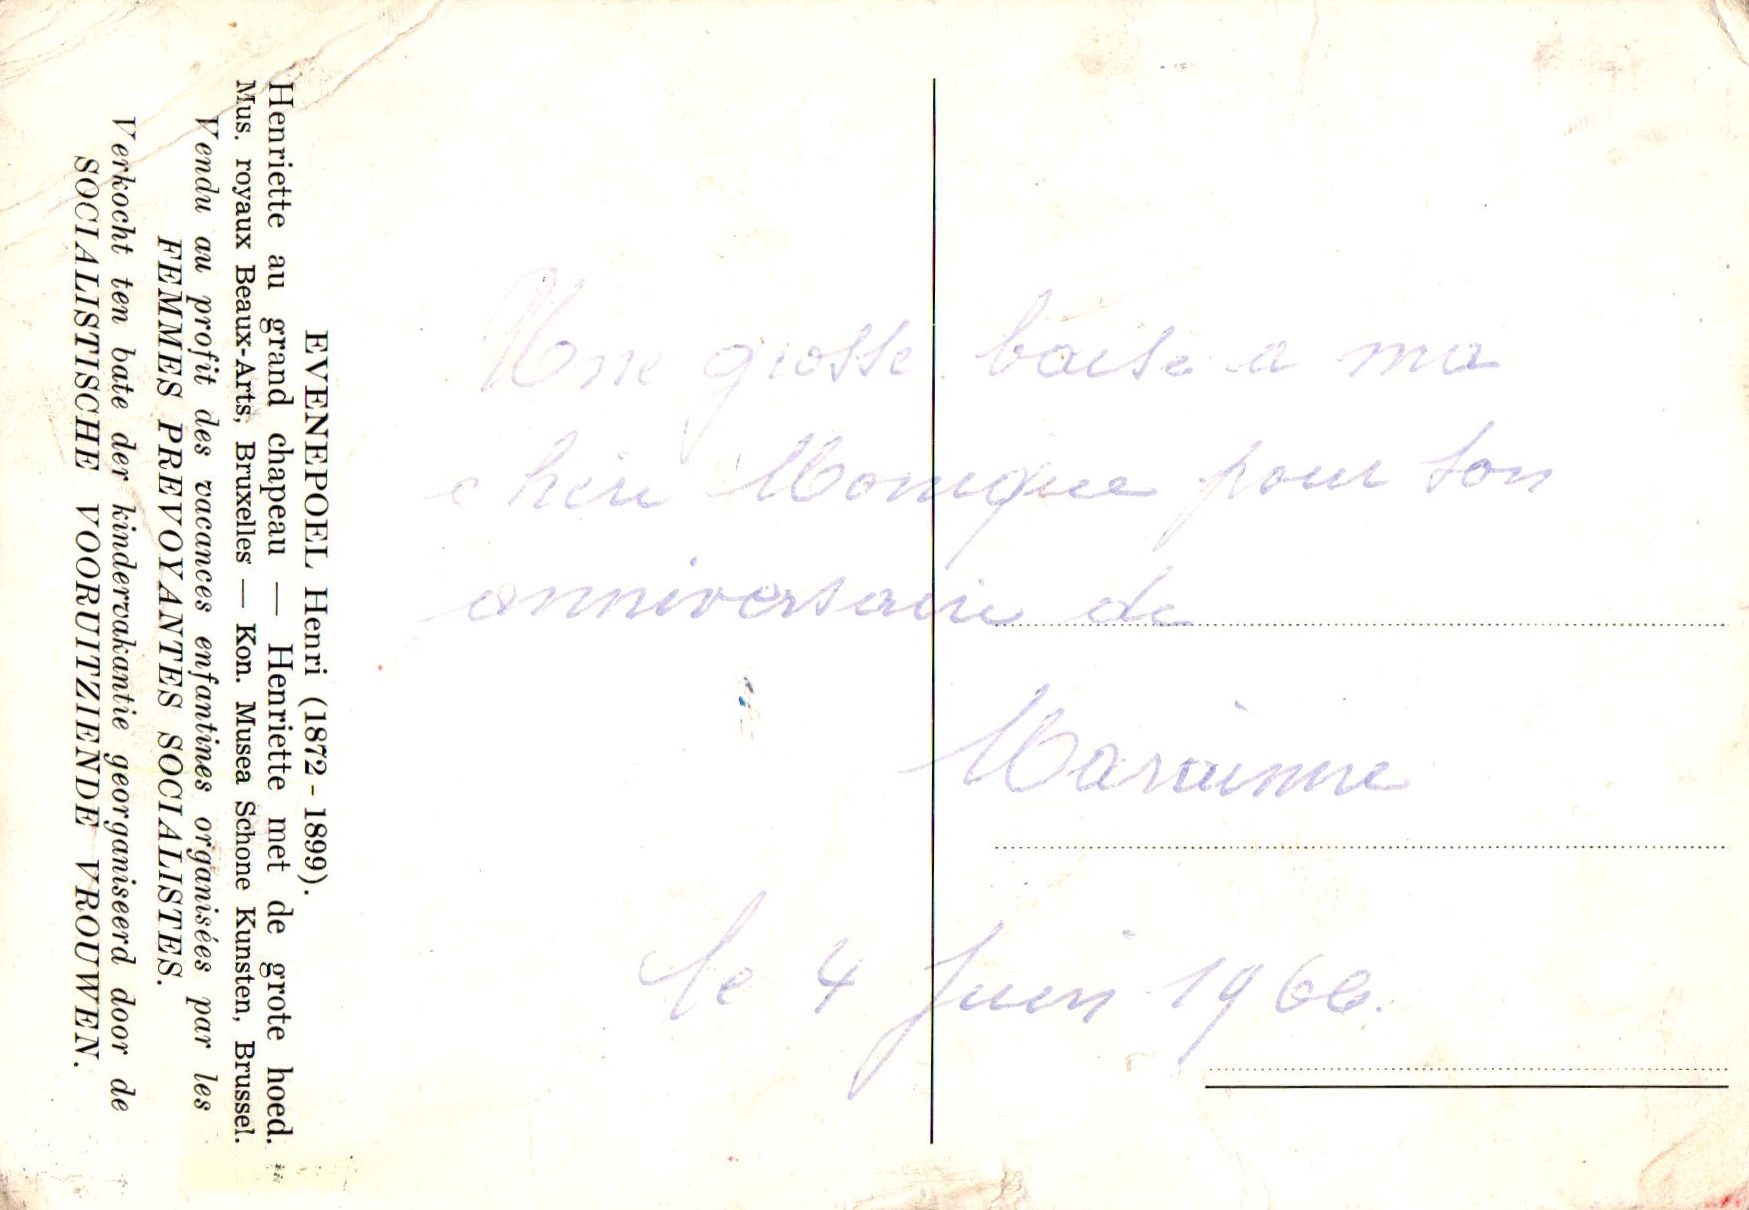 EVENEPOEL Henri (1872 - 1899).
Henriette au grand chapeau — Henriette met de grote hoed.
Mus. royaux Beaux-Arts, Bruxelles — Kon. Musea Schone Kunsten, Brussel.
Vendu au profit des vacances enfantines organisées par les
FEMMES PREVOYANTES SOCIALISTES.
Verkocht ten bate der kindervakantie georganiseerd door de
SOCIALISTISCHE VOORUITZIENDE VROUWEN.
Une grosse baise a ma
chere Monique pour son
anniversaire de
le 4 Juin 1966.